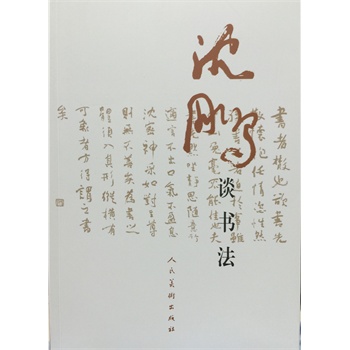 沈鹏
谈书法
書者散也欲書先
散懷抱任情恣性然
迫於事雖
兔毫不能佳也夫
坐靜思隨意所
適言不出口氣不盈息
沈密神采如對至尊
則無不善矣為書
體須入其形縱橫有
可象者方得謂之書
矣
人民美術出版社